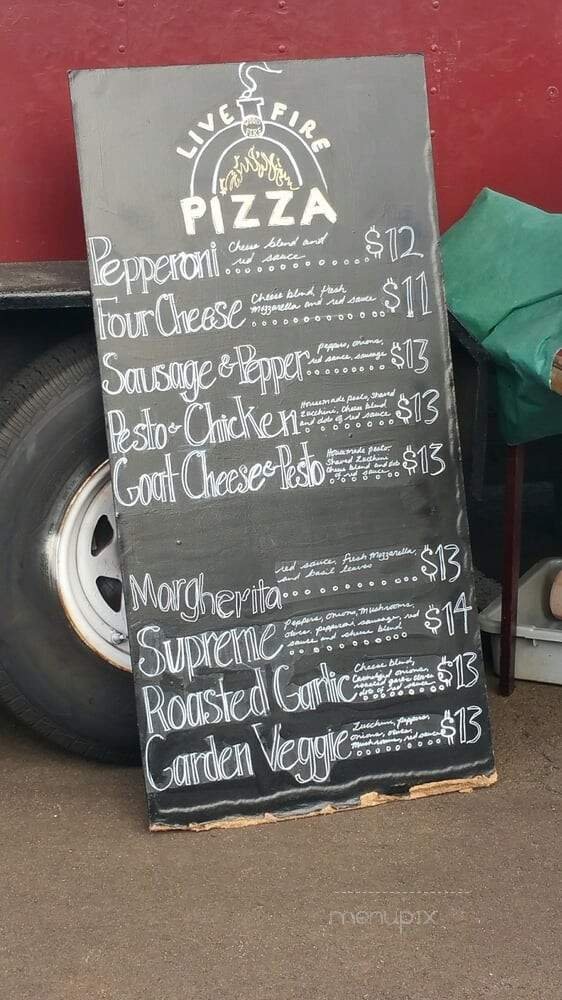 LIVE FIRE
PIZZA
Pepperoni Cheese blend and $12
red sauce
Four Cheese Cheese blend, fresh $11
Mozzarella and red sauce
Sausage & Pepper peppers, onions, $13
red sauce, sausage
Pesto & Chicken Housemade pesto, shaved $13
Zucchini, Cheese blend
and dots of red sauce
Goat Cheese & Pesto Housemade pesto, $13
Shaved Zucchini
Cheese blend and dots
of red sauce
Margherita red sauce, fresh Mozzarella, $13
and basil leaves
Supreme Peppers, Onions, Mushrooms, $14
olives, pepperoni sausage, red
sauce and cheese blend
Roasted Garlic Cheese blend, $13
onions,
roasted garlic cloves
dots of red sauce
Garden Veggie Zucchini, peppers, $13
onions, olives,
Mushrooms, red sauce
menupix